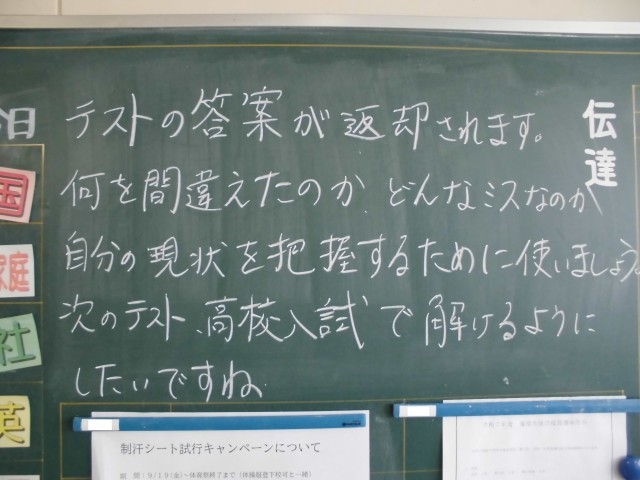 伝達
テストの答案が返却されます。
何を間違えたのか どんなミスなのか
自分の現状を把握するために使いましょう
次のテスト、高校入試で解けるように
したいですね
日
国
家庭
社
英
制汗シート試行キャンペーンについて
期 間：9/19(金)～体育祭終了まで（体操服登下校可と一緒）